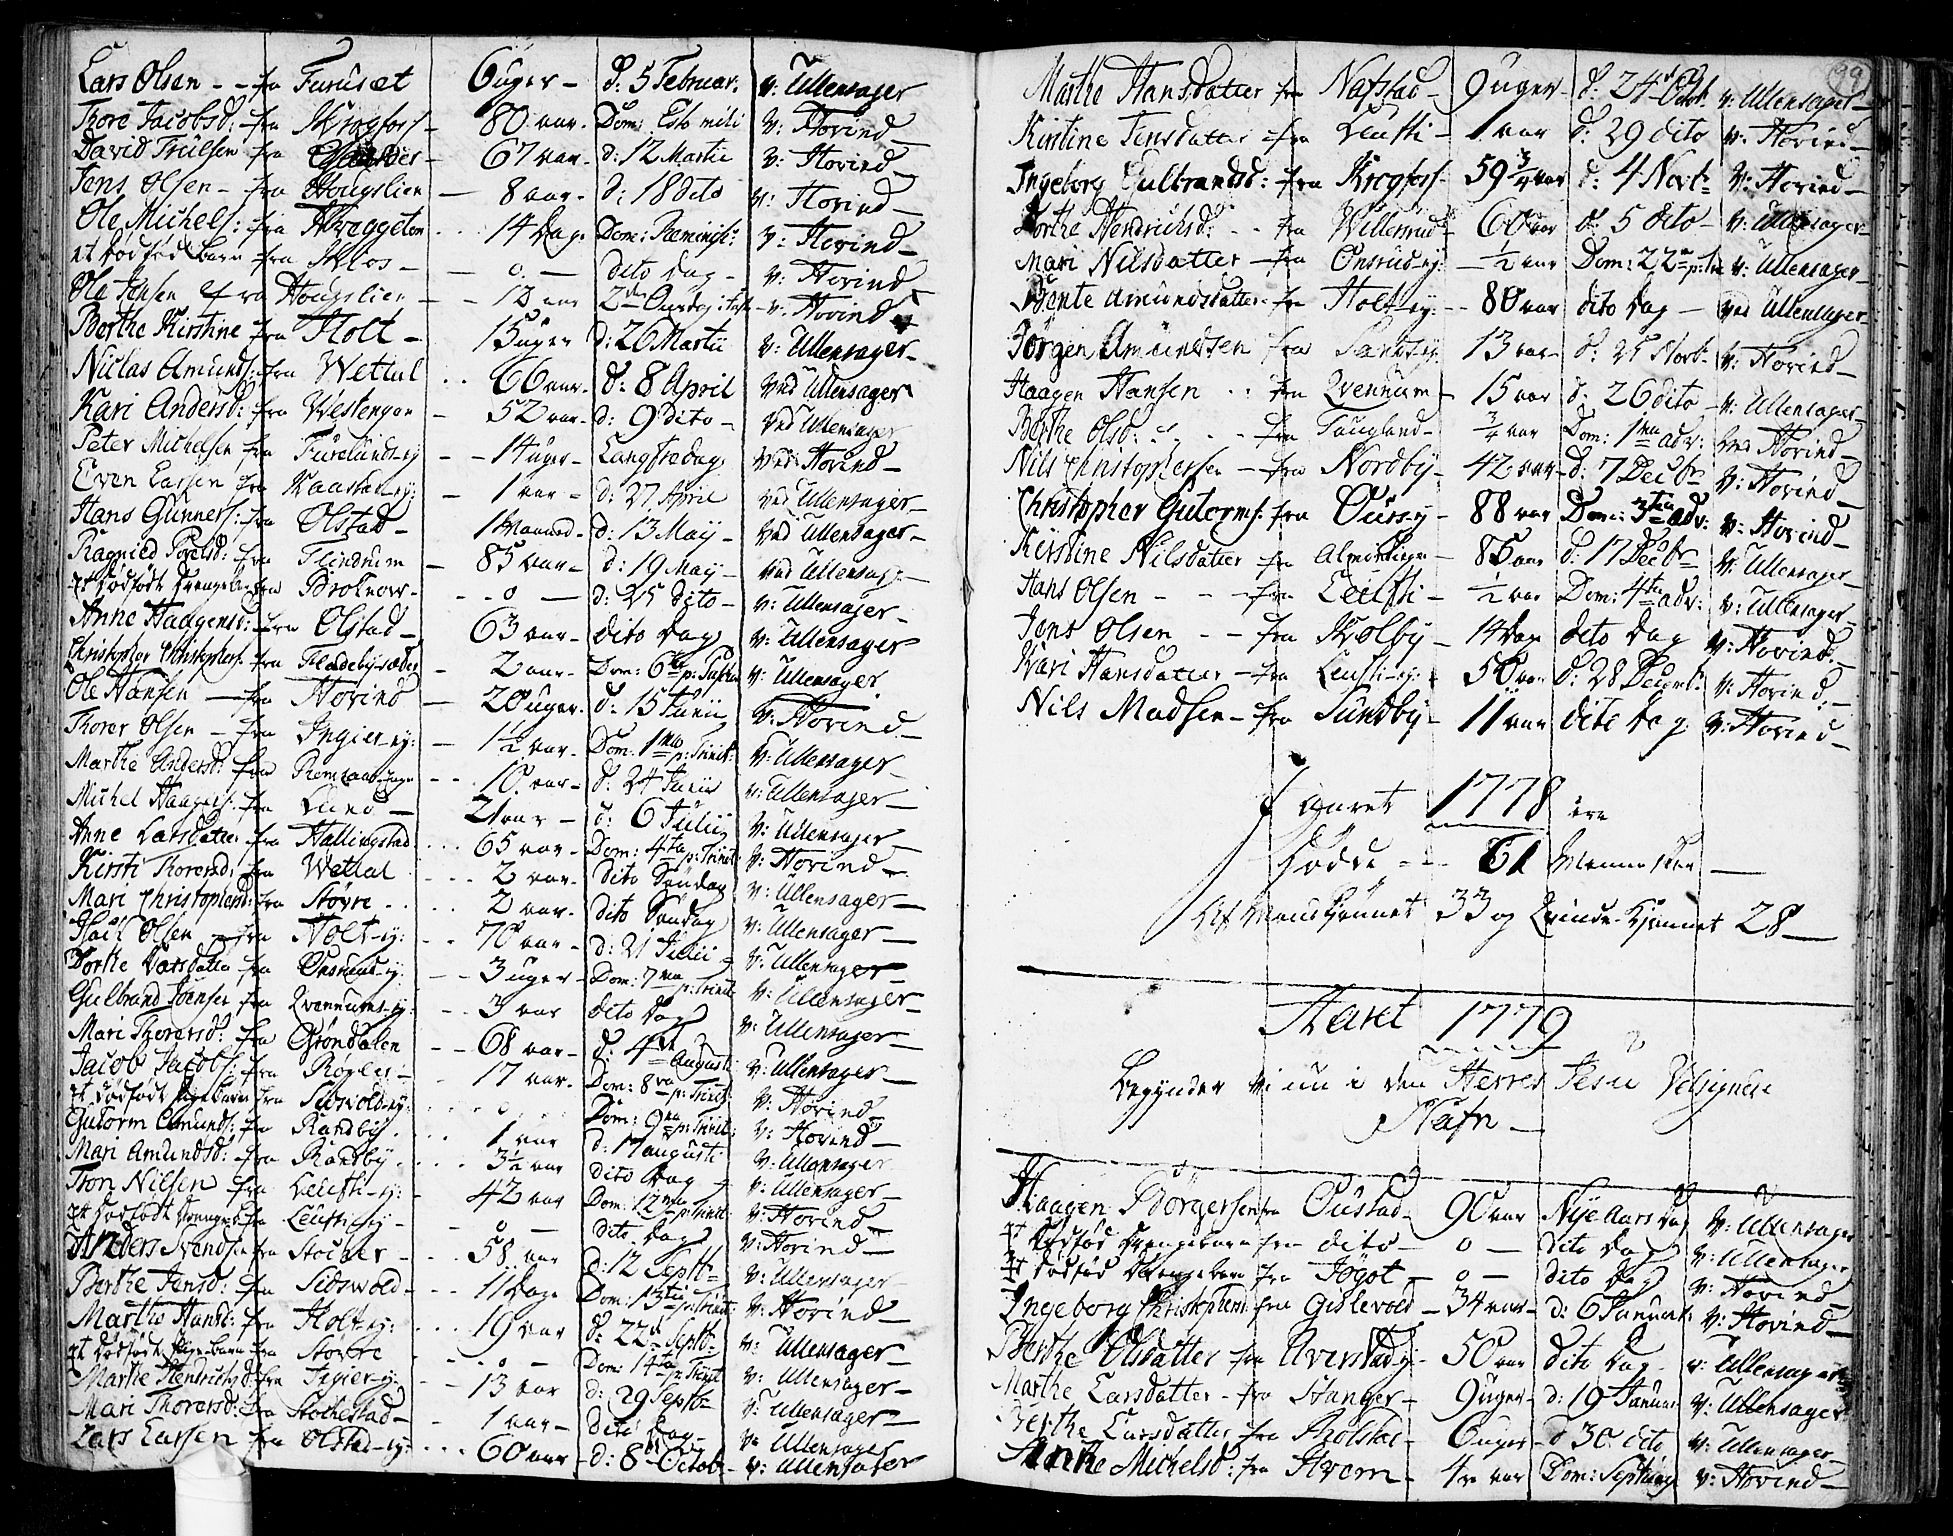 Lars Olsen - - fra Furuset 6 uger - d: 5 Februar. v: Ullensager
Thore Jacobsd: fra Krogfoss 80 aar - Dom: Esto mihi v: Hovind
David Truelsen fra 67 aar - d: 12 Martii v: Hovind
Jens Olsen - fra Hougslien - 8 aar - d: 18 dito v: Hovind
Ole Michels: fra 14 Dage Dom: Reminisc: v: Hovind
et dødfød barn fra - 0 - dito dag - v: Hovind
Ole Jensen fra Hougslien - - 12 aar v: Hovind
Berthe Kirstine fra Holt - 15 uger d: 26 Martii v: Ullensager -
Niclas Amunds: fra Wettal 66 aar - d: 8 April ved Ullensager
Kari Andersd: fra Westengen - 52 aar - d: 9 dito - ved Ullensager
Peter Michelsen fra Furulund-ey - - 14 uger - Langfredag ved Hovind -
Even Larsen fra Kaastad-ey: - 1 aar - d: 27 April ved Ullensager -
Hans Gunners: fra Olstad - 1 Maaned - d: 13 Maij - ved Ullensager -
Ragnild Povelsd: fra Flindrum - 85 aar - d: 19 Maij - ved Ullensag: -
et dødfødt drengebarn fra - - 0 - d: 25 dito - v: Ullensager -
Anne Haagensd: fra Olstad - 63 aar - dito Dag v: Ullensager
Christopher Christophers: fra Fladebysæder - 2 aar - Dom: 6ta p: v: Ullensager
Ole Hansen - fra Hovind - 20 uger - d: 15 Junii v: Hovind -
Thorer Olsen - fra Ingier-ey: - 1½ aar - Dom: 1ma p: Trinit: v: Ullensager -
Marthe Andersd: fra - - - 10 aar - d: 24 Junii v: Ullensager -
Michel Haagens: fra Lund - 21 aar - d: 6 Julii v: Ullensager
Anne Larsdatter fra Hallingstad 65 aar - Dom: 4ta p: Trinit: v: Hovind -
Kirsti Thorersd: fra Wettal 2 aar - dito Søndag v: Ullensager -
Mari Christophersd: fra Støvre 2 aar - dito Søndag v: Ullensager -
Olsen fra Holt-ey: - - - 70 aar - d: 21 Julii v: Ullensager
Dorthe Larsdatter fra Onsrud-ey: - - 3 uger - Dom: 7ma p: Trinit: v: Ullensager -
Gulbrand Joensen fra Qvennum-ey: - - 3 aar dito Dag v: Ullensager -
Mari Thorersd: fra Grøndalen - - 68 aar - d: 4de Augusti v: Ullensager -
Jacob Jacobs: fra Røgler - 17 aar - Dom: 8va p: Trinit: v: Hovind -
et dødfødt Pigebarn fra Sidsvold-ey: . . . 0 . . Dom: 9na p: Trinit: v: Hovind -
Gutorm Amunds: fra Randby . . . . 1 aar d: 17 Augusti v: Ullensager
Mari Amundsd: fra Randby . . . . 3½ aar dito Dag v: Ullensager -
Tron Nilsen fra Leufti-ey: - 42 aar Dom: 12ma p: Trinit: v: Hovind -
et dødfødt drengeb: fra Leufti-ey - - 0 - dito Dag v: Hovind -
Anders Svendsen fra Stocker - 58 aar d: 12 Septbr v: Ullensager
Berthe Jensd: fra Sidsvold - - - 11 Dage Dom: 13tia p: Trinit: v: Hovind -
Marthe Hansd: fra Holt-ey: . . . . 19 aar d: 22 Septbr v: Ullensager -
et dødfødt Pigebarn fra Støvre . . . 0 - Dom: 14ta p: Trinit v: Ullensager -
Marthe Hendrichsd: fra Ingier-ey: - - 13 aar d: 29 Septbr v: Ullensager -
Mari Thorersd: fra Stochestad - - 1 aar - dito Dag v: Ullensager
Lars Larsen fra Olstad-ey: . . . 60 aar - d: 8 Octobr - v: Ullensager
99
Marthe Hansdatter fra Nafstad - 9 uger - d: 24 Octobr v: Ullensager -
Kirstine Jensdatter fra Leufti - 1 aar d: 29 dito v: Hovind -
Ingeborg Gulbrandsd: fra Krogfoss - 59¾ aar d: 4 Novbr v: Hovind -
Dorthe Hendrichsd: - - fra Willerud - 60 aar d: 5 dito - v: Ullensager -
Mari Nilsdatter - fra Onsrud-ey: - ½ aar Dom: 22 p: Tr: v: Ullensager
Bente Amundsdatter fra Holt-ey: - - 80 aar dito Dag - ved Ullensager -
Jørgen Amundsen fra Sand-ey 13 aar - d: 25 Novb: v: Hovind -
Haagen Hansen - - fra Qvennum - 15 aar d: 26 dito - v: Ullensager
Berthe Olsd: - - - fra Taugland - ¾ aar Dom: 1ma adv: ved Hovind -
Nils Christophersen - fra Nordby - 42 aar - d: 7 Decbr v: Hovind -
Christopher Gutorms: fra Ouss-ey - 88 aar Dom: 3tia adv: v: Hovind -
Kirstine Nilsdatter fra Almindingen - 85 aar d: 17 Decbr v: Ullensager -
Hans Olsen - - - fra Leufti - ½ aar Dom: 4ta adv: v: Ullensager -
Jens Olsen - - fra Kolby - 14 Dage dito Dag v: Hovind -
Kari Hansdatter - fra Leufti-ey: 50 aar d: 28 Decemb: v: Hovind -
Nils Madsen - fra Sundby - 11 aar dito Dag v: Hovind -
I aaret 1778 ere
døde - - - 61 Mennesker -
Af Mandkjønnet 33 og Qvinde-Kjønnet 28 -
Aaret 1779
Begynder vi nu i den Herres Jesu Velsignede
Nafn -
Haagen Børgersen fra Oustad - 90 aar Nye Aars Dag v: Ullensager
et dødfød drengebarn fra dito - 0 - dito Dag v: Ullensager
et dødfød drengebarn fra Jogot - 0 - dito Dag v: Hovind
Ingeborg Christophersd: fra Gislevold - 34 aar - d: 6 Januarii v: Hovind -
Berthe Olsdatter fra Averstad-ey - 50 aar dito Dag - v: Ullensager
Marthe Larsdatter - fra Hanger - 9 uger - d: 19 Januar v: Ullensager
Berthe Larsdatter fra - 6 uger - d: 30 dito v: Ullensager -
Anne Michelsd: fra Hvem - aar Dom: Septuag v: Hovind -